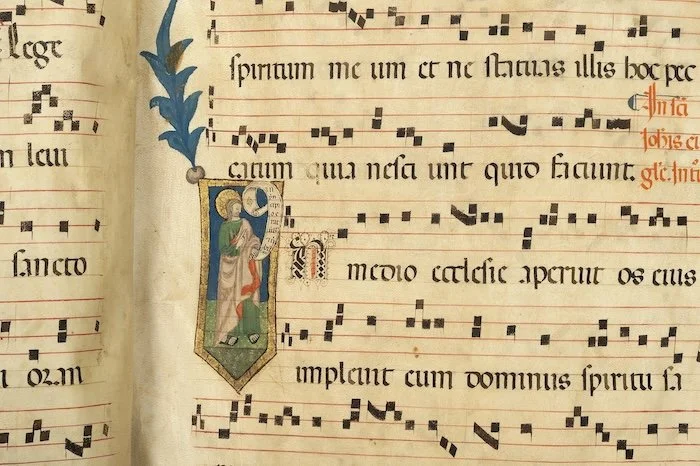 lege
n leui
sancto
i oran
spiritum me um et ne statuas illis hoc pec
catum quia nesci unt quid faciunt.
In sci
Johis eu
In medio ecclesie aperuit os eius
impleuit eum dominus spiritu sa